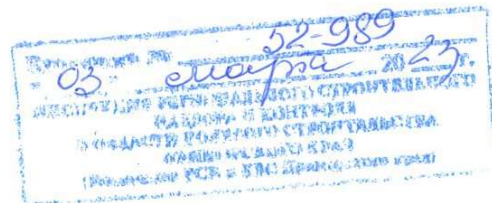 52-989
03 марта 2023 г.
ИНСПЕКЦИЯ РЕГИОНАЛЬНОГО СТРОИТЕЛЬНОГО
НАДЗОРА И КОНТРОЛЯ
В ОБЛАСТИ ДОЛЕВОГО СТРОИТЕЛЬСТВА
ПРИМОРСКОГО КРАЯ
РСН и КДС Приморского края)